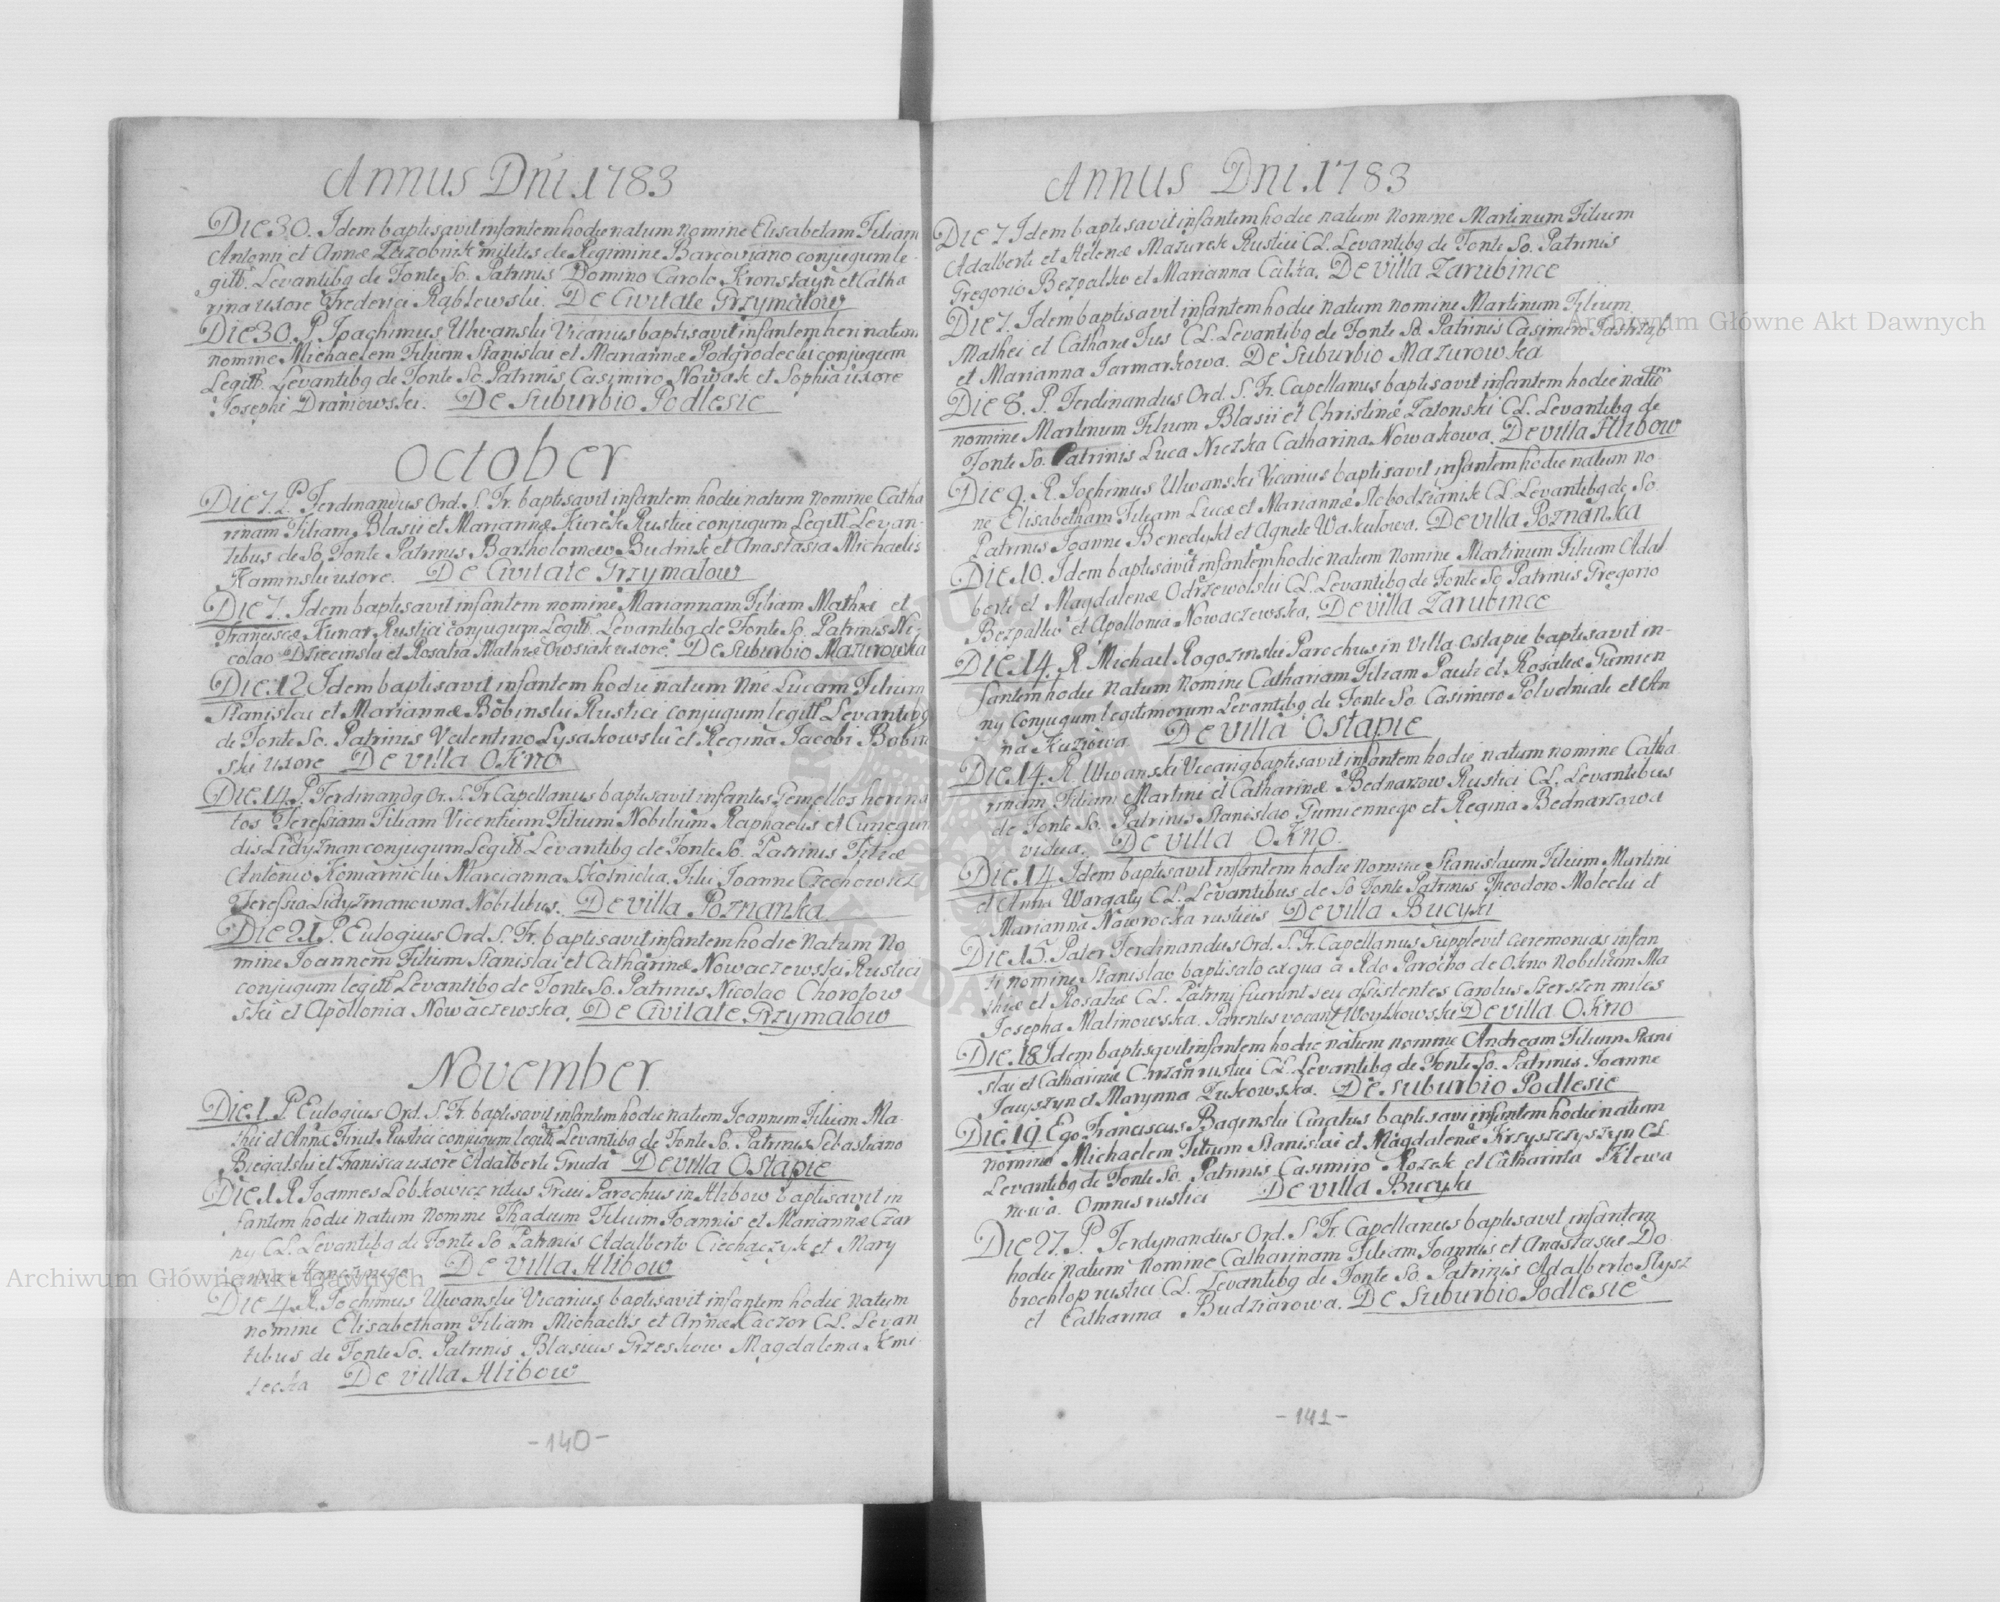 Annus Dni. 1783
Die 30. Idem baptisavit infantem hodie natum nomine Elisabetam Filiam
Antonii et Annæ militis de Regimine Barcoviano conjugum le-
gitt. Levantibq de Fonte So. Patrinis Domino Carolo Kronstayn et Catha
rina uxore Frederya Rąblewski. De Civitate Grzymałow
Die 30. P. Joachimus Ulwanski Vicarius baptisavit infantem heri natum
nomine Michaelem Filium Stanislai et Mariannæ Podgrodecki conjugum
Legitt. Levantibq de Fonte So. Patrinis Casimiro Nowak et Sophia uxore
Josephi Draniowski. De Suburbio Podlesie
October
Die 7. P. Ferdinandus Ord. S. Fr. baptisavit infantem hodie natum nomine Catha
rinam Filiam Blasii et Mariannæ Kurek Rustici conjugum Legitt. Levan-
tibus de So. Fonte Patrinis Bartholomeo Budnik et Anastasia Michaelis
Kaminski uxore. De Civitate Grzymałow
Die 7. Idem baptisavit infantem nomine Mariannam Filiam Mathiæ et
Franciscæ Kunar Rustici conjugum Legitt. Levantibq de Fonte So. Patrinis Ni-
colao Dziecinski et Rosalia Mathiæ Owsiak uxore. De Suburbio Mazurowka
Die 12. Idem baptisavit infantem hodie natum Nne Lucam Filium
Stanislai et Mariannæ Bobinski Rustici conjugum legitt. Levantibq
de Fonte So. Patrinis Valentino Lysakowski et Regina Jacobi Bobin
ski uxore De villa Okno
Die 14. P. Ferdinandq Or. S. Fr. Capellanus baptisavit infantes Gemellos heri na
tos Teressiam Filiam Vicentium Filium Nobilium Raphaelis et Cunegun
dis Lidyznan conjugum Legitt. Levantibq de Fonte So. Patrinis Filiæ
Antonio Komarnicki Marcianna Skotnicka. Filii Joanne Czechowicz
Teressia Lidyzmanowna Nobilibus. De villa Poznanka
Die 21. P. Eulogius Ord. S. Fr. baptisavit infantem hodie natum no
mine Joannem Filium Stanislai et Catharinæ Nowaczewski Rustici
conjugum legitt. Levantibq de Fonte So. Patrinis Nicolao Chorolow
ski et Apollonia Nowaczewska. De Civitate Grzymałow
November
Die 1. P. Eulogius Ord. S. Fr. baptisavit infantem hodie natum Joannem Filium Ma-
thei et Annæ Rustici conjugum legitt. Levantibq de Fonte So. Patrinis Sebastiano
Biegalski et Franisca uxore Adalberti Gruda De villa Ostapie
Die 1. R. Joannes Lobkowicz ritus Græci Parochus in Hlibow baptisavit in
fantem hodie natum nomine Thadeum Filium Joannis et Mariannæ Czar
ny CL. Levantibq de Fonte So. Patrinis Adalberto Ciechaczyk et Mary
anna De villa Hlibow
Die 4. R. Jochimus Ulwanski Vicarius baptisavit infantem hodie natum
nomine Elisabetham Filiam Michaelis et Annæ Kaczor CL. Levan
tibus de Fonte So. Patrinis Blasius Grzeskow Magdalena Kmi-
De villa Hlibow
-140-
Annus Dni. 1783
Die 7. Idem baptisavit infantem hodie natum nomine Martinum Filium
Adalberti et Helenæ Mazurek Rustici CL. Levantibq de Fonte So. Patrinis
Gregorio Bezpalko et Marianna Calka. De villa Zarubince
Die 7. Idem baptisavit infantem hodie natum nomine Martinum Filium
Mathei et Fus CL. Levantibq de Fonte So. Patrinis Casimiro
et Marianna Jarmarkowa. De Suburbio Mazurowka
Die 8. P. Ferdinandus Ord. S. Fr. Capellanus baptisavit infantem hodie natum
nomine Martinum Filium Blasii et Christinæ Zatonski CL. Levantibq de
Fonte So. Patrinis Luca Nieczka Catharina Nowakowa. De villa Hlibow
Die 9. R. Jochimus Ulwanski Vicarius baptisavit infantem hodie natum no-
ne Elisabetham Filiam Lucæ et Mariannæ Slobodzianik CL. Levantibq de So
Patrinis Joanne Benedykt et Agnete Wakulowa. De villa Poznanka
Die 10. Idem baptisavit infantem hodie natum nomine Martinum Filium Adal
berti et Magdalenæ Odrzewolski CL. Levantibq de Fonte So Patrinis Gregorio
Bezpalko et Apollonia Nowaczewska. De villa Zarubince
Die 14. R. Michael Rogozinski Parochus in Villa Ostapie baptisavit in-
fantem hodie natum nomine Cathariam Filiam Pauli et Rosaliæ Gumien
ny Conjugum legitimorum Levantibq de Fonte So. Casimiro Poludniak et An
na Kuziowa De villa Ostapie
Die 14. R. Ulwanski Vicariq baptisavit infantem hodie natum nomine Catha
rinam Filiam Martini et Catharinæ Bednarzow Rustici CL. Levantibus
de Fonte So. Patrinis Stanislao Gumiennego et Regina Bednarzowa
vidua. De villa Okno
Die 14. Idem baptisavit infantem hodie nomine Stanislaum Filium Martini
et Annæ Wargaty CL. Levantibus de So Fonte Patrinis Theodoro Molecki et
Marianna Nawrocka rusticis De villa Bucyki
Die 15. Pater Ferdinandus Ord. S. Fr. Capellanus supplevit ceremonias infan
ti nomine Stanislao baptisato ex qua a Rdo Parocho de Okno Nobilium Ma
thiæ et Rosaliæ CL. Patrini fuerunt seu assistentes Carolus Szerszen miles
Josepha Malinowska. Parentes vocant Woytkowski De villa Okno
Die 18. Idem baptisavit infantem hodie natum nomine Andream Filium Stani
slai et Catharinæ Chrzan rustici CL. Levantibq de Fonte So. Patrinis Joanne
Jauyszyn et Marynna Zukowska. De suburbio Podlesie
Die 19. Ego Franciscus Baginski Curatus baptisavi infantem hodie natum
nomine Michaelem Filium Stanislai et Magdalenæ Krzyszczyszyn CL.
Levantibq de Fonte So. Patrinis Casimiro Rozek et Catharina Klewa
nowa. Omnes rustici De villa Bucyki
Die 27. P. Ferdynandus Ord. S Fr. Capellanus baptisavit infantem
hodie natum nomine Catharinam Filiam Joannis et Anastasiæ Do
brochlop rustici CL. Levantibq de Fonte So. Patrinis Adalberto Slysz
et Catharina Budziarowa. De Suburbio Podlesie
-141-
Archiwum Główne Akt Dawnych
Archiwum Główne Akt Dawnych